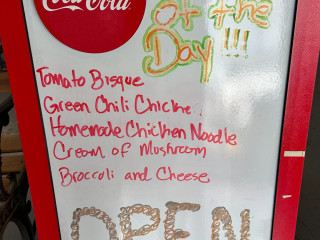 Coca-Cola
of the
Day!!!
Tomato Bisque
Green Chili Chicke
Homemade Chicken Noodle
Cream of Mushroom
Broccoli and Cheese
OPEN